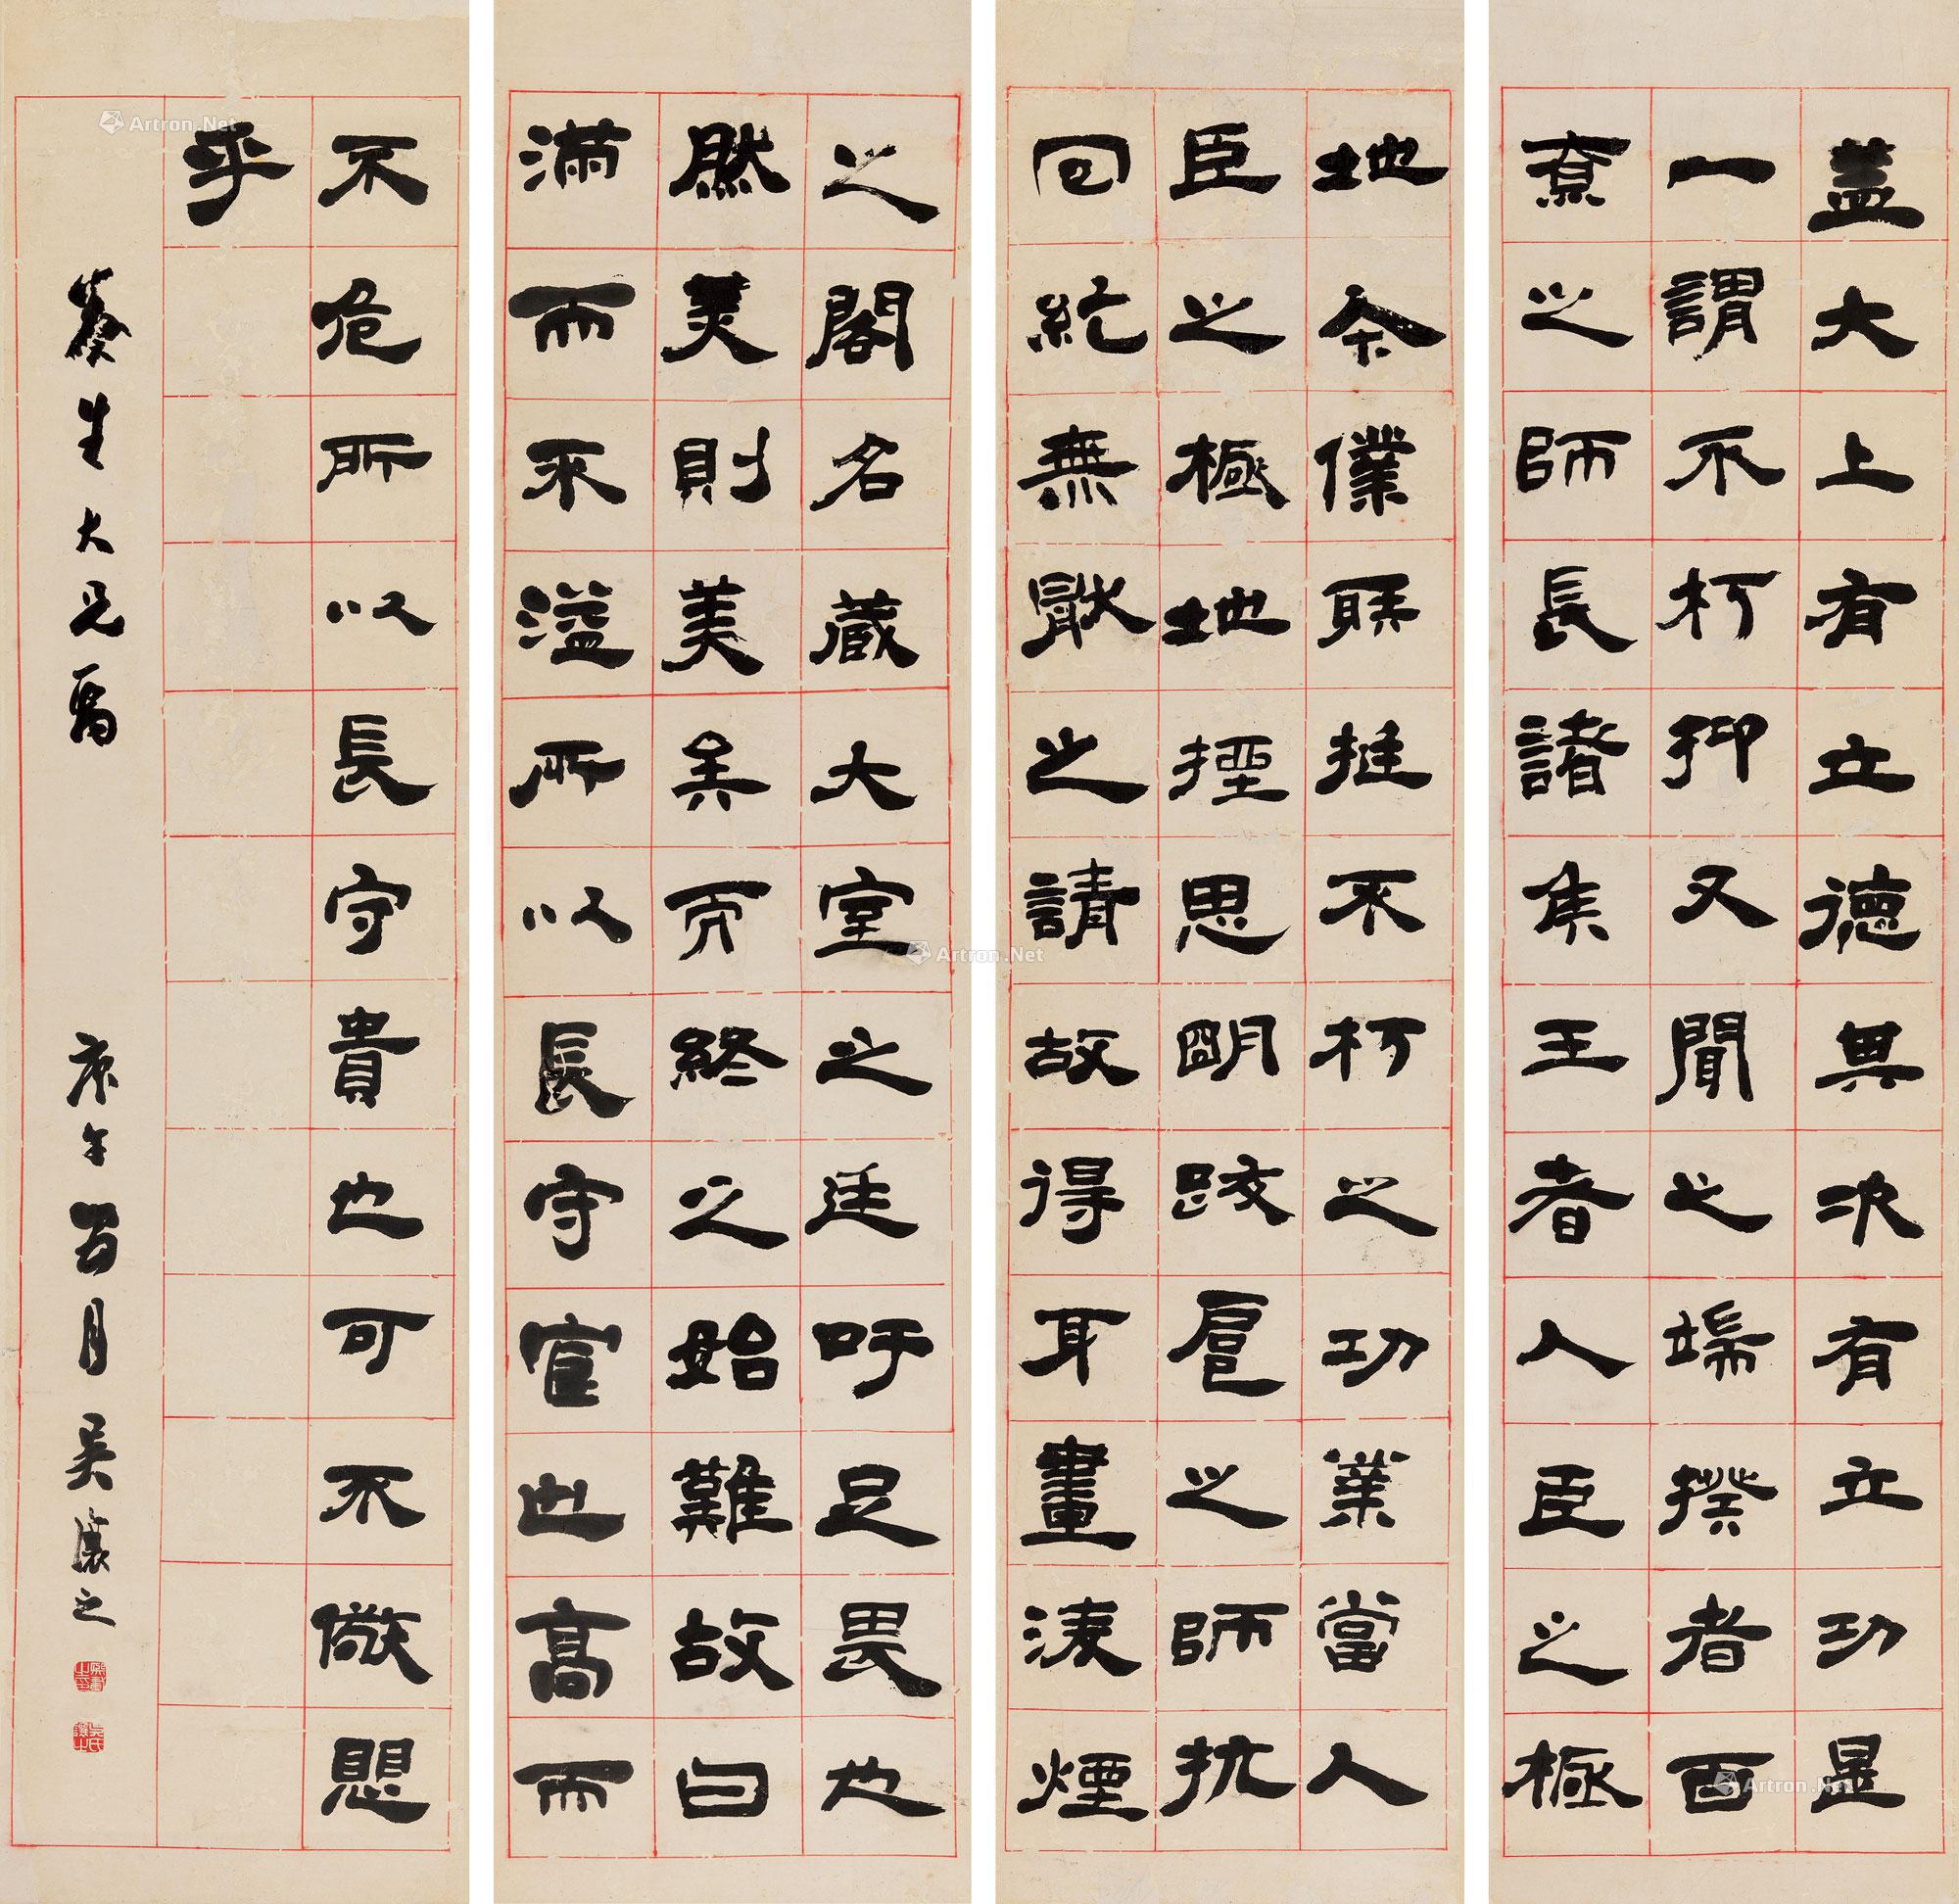 蓋大上有立德其次有立功是
一謂不朽抑又聞之端揆者百
寮之師長諸侯王者人臣之極
地今僕射挺不朽之功業當人
臣之極地挫思明跋扈之師抗
回紇無猒之請故得身畫淩煙
之閣名藏大室之廷吁足畏也
然美則美矣而終之始難故曰
滿而不溢所以長守富也高而
不危所以長守貴也可不儆懼
乎
葵生大兄屬
庚午月吳讓之
熙載之印
吳氏讓之
Artron.Net
Artron.Net
Artron.Net